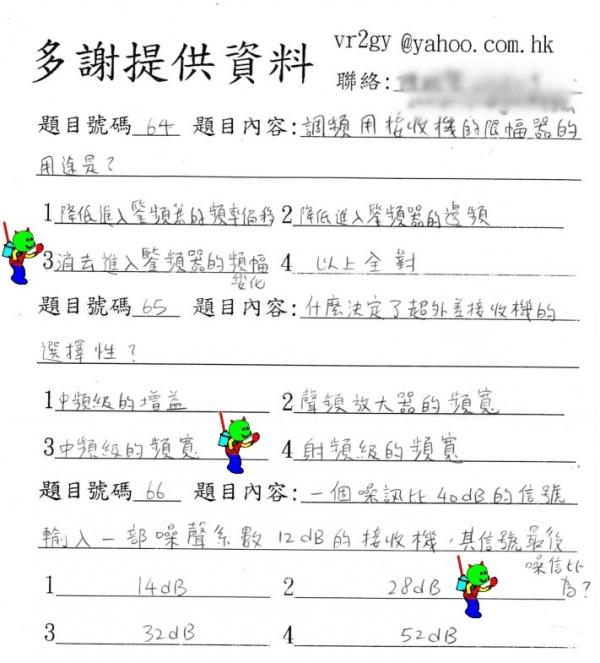 多謝提供資料 vr2gy @yahoo.com.hk
聯絡:
題目號碼 64 題目內容:調頻用接收機的限幅器的
用途是?
1 降低進入鑒頻器的頻率偏移 2 降低進入鑒頻器的邊頻
3 消去進入鑒頻器的頻幅變化 4 以上全對
題目號碼 65 題目內容:什麼決定了超外差接收機的
選擇性?
1 中頻級的增益 2 聲頻放大器的頻寬
3 中頻級的頻寬 4 射頻級的頻寬
題目號碼 66 題目內容:一個噪訊比40dB的信號
輸入一部噪聲系數12dB的接收機,其信號最後
噪信比為?
1 14dB 2 28dB
3 32dB 4 52dB